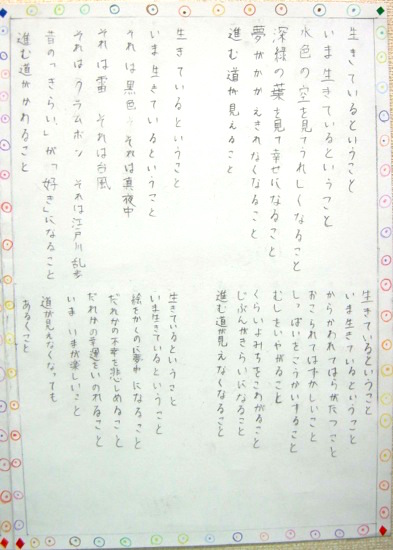 生きているということ
いま生きているということ
水色の空を見てうれしくなること
深緑の葉を見て幸せになること
夢がかかえきれなくなること
進む道が見えること
生きているということ
いま生きているということ
それは黒色 それは真夜中
それは雷 それは台風
それはクラムボン それは江戸川乱歩
昔の「きらい」が「好き」になること
進む道がかわること
生きているということ
いま生きているということ
からかわれてはらがたつこと
おこられてはずかしいこと
しっぱいをこうかいすること
むしをいやがること
くらいよみちをこわがること
じぶんがきらいになること
進む道が見えなくなること
生きているということ
いま生きているということ
絵をかくのに夢中になること
だれかの不幸を悲しめること
だれかの幸運をいのれること
いま いまが楽しいこと
道が見えなくなっても
あるくこと